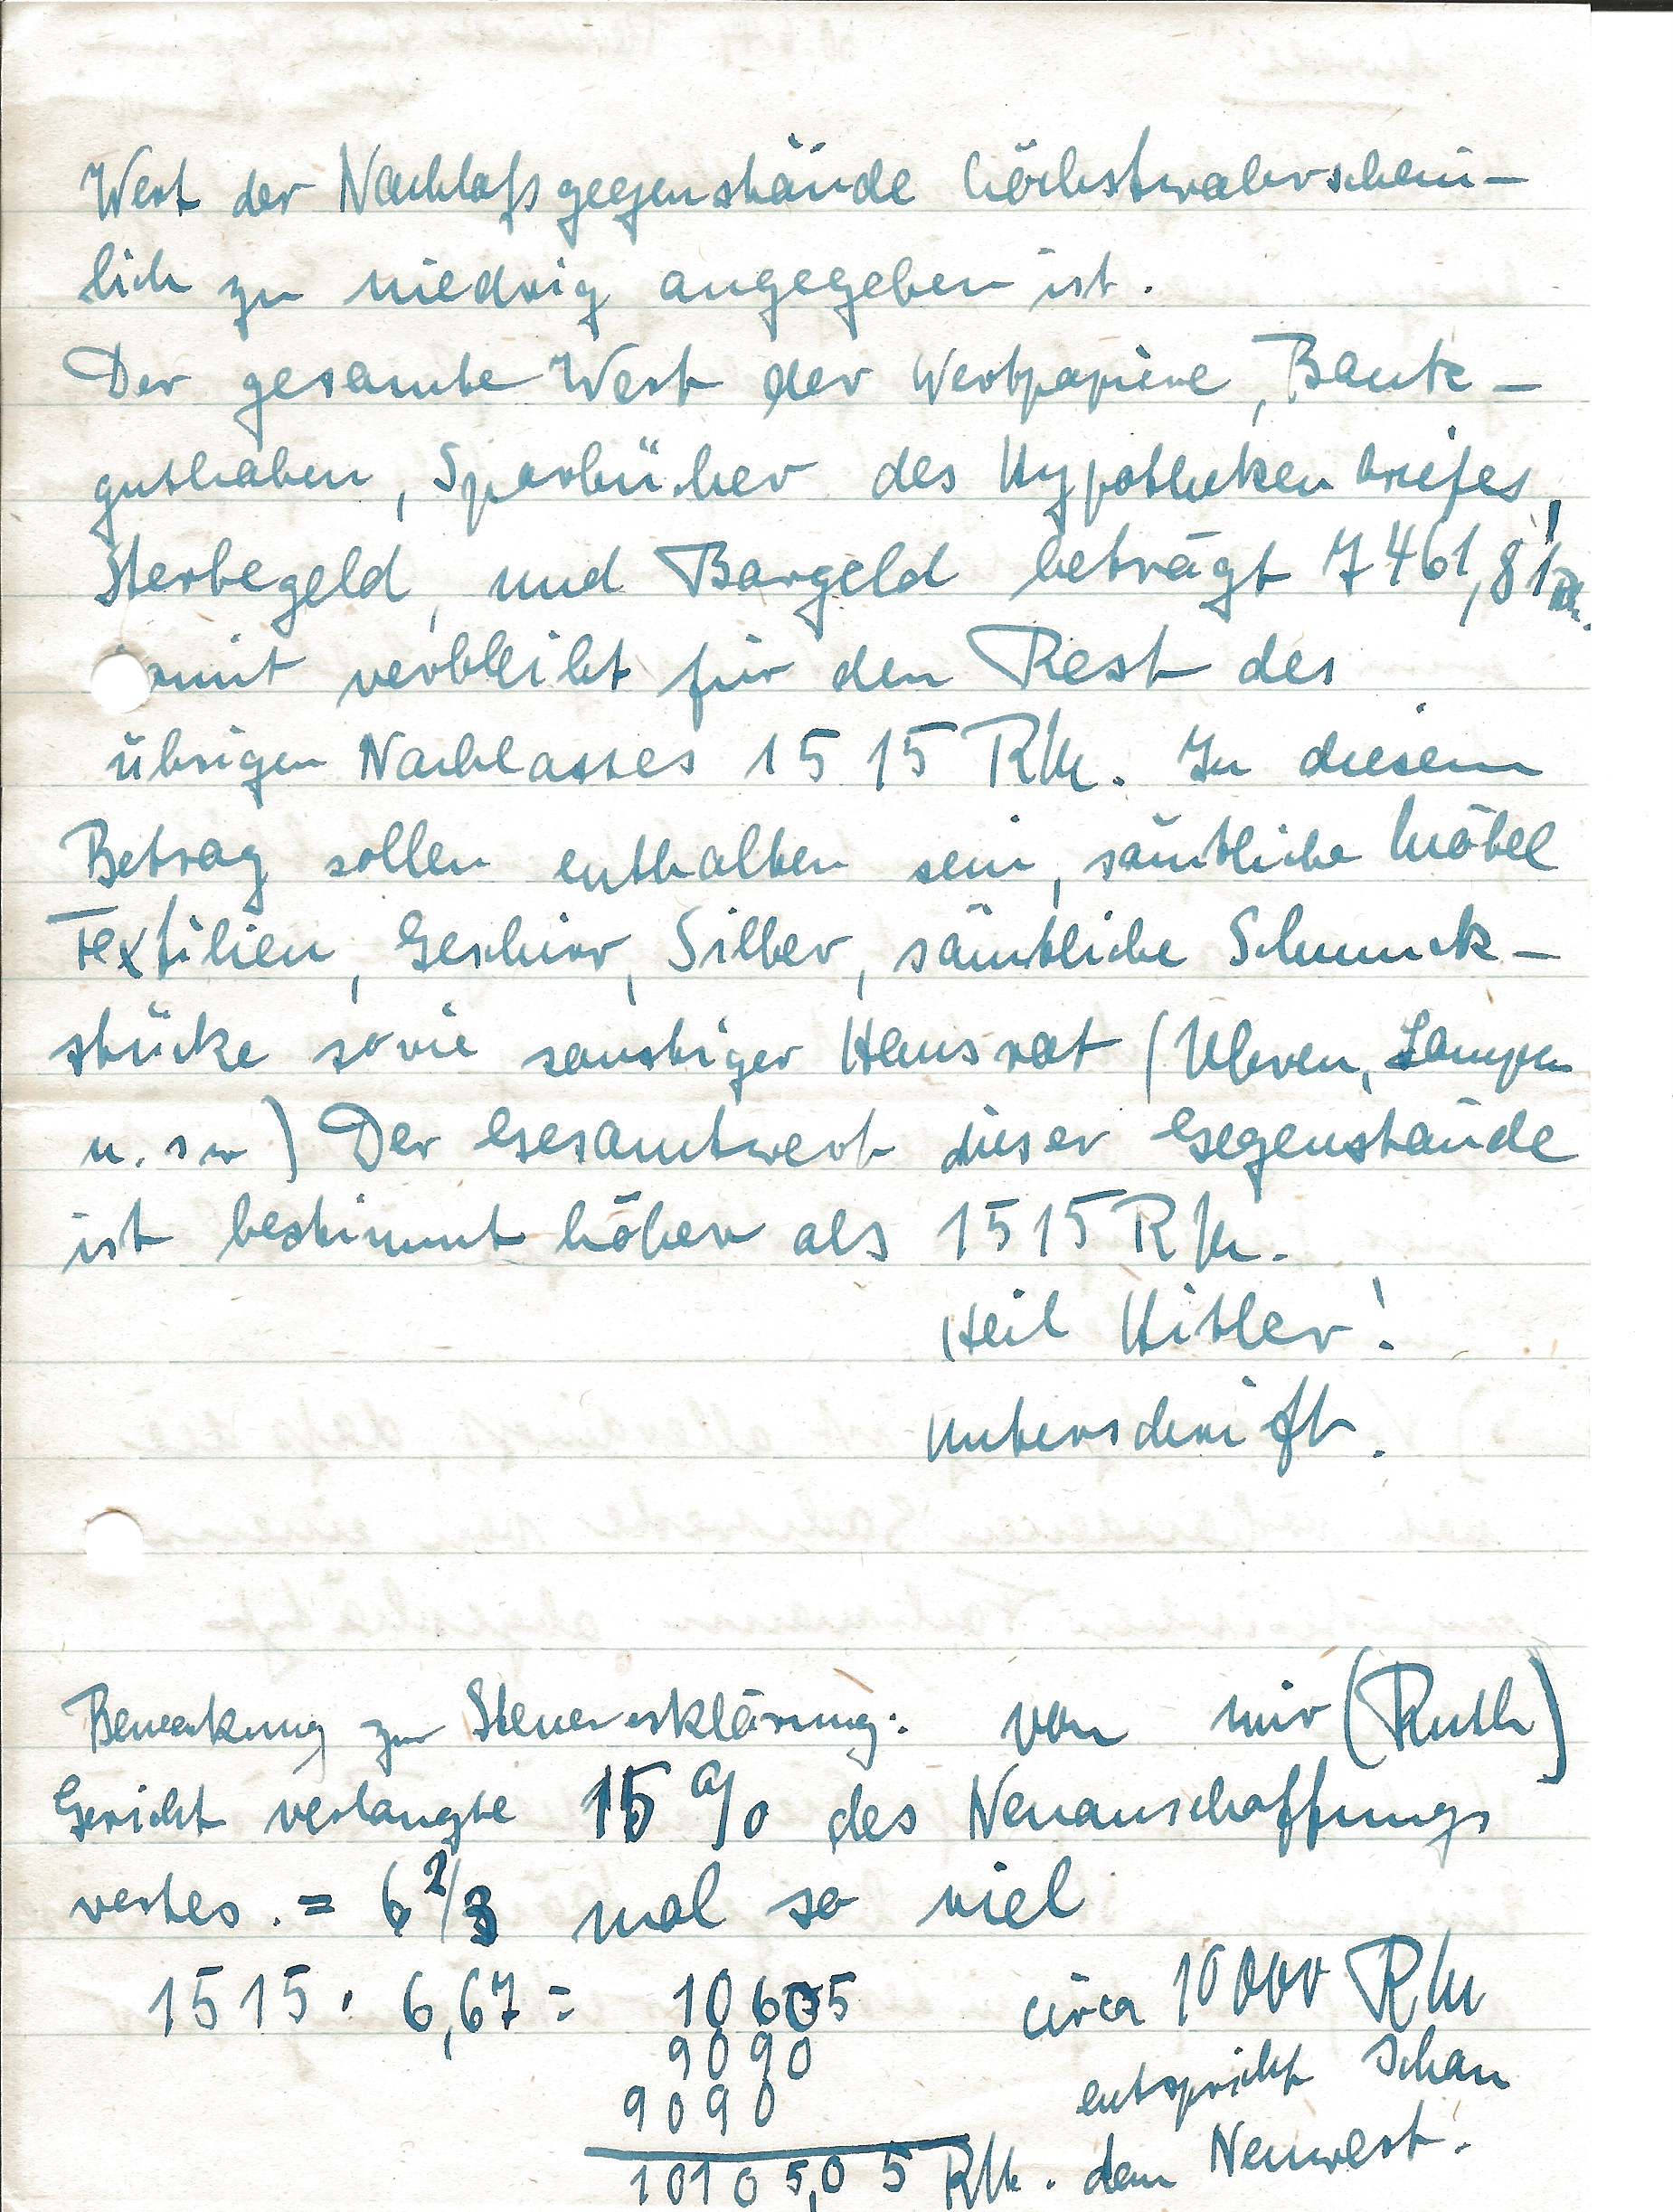 Wert der Nachlaßgegenstände höchstwahrschein-
lich zu niedrig angegeben ist.
Der gesamte Wert der Wertpapiere, Bank-
guthaben, Sparbücher des Hypothekenbriefes,
Sterbegeld, und Bargeld beträgt 7461,81 RM.
somit verbleibt für den Rest des
übrigen Nachlasses 1515 RM. In diesem
Betrag sollen enthalten sein, sämtliche Möbel
Textilien, Geschirr, Silber, sämtliche Schmuck-
stücke sowie sonstiger Hausrat (Uhren, Lampen
u.s w) Der Gesamtwert dieser Gegenstände
ist bestimmt höher als 1515 RM.
Heil Hitler!
Unterschrift.
Bemerkung zur Steuererklärung: von mir (Ruth)
Gericht verlangte 15 % des Neuanschaffungs
wertes. = 6 2/3 mal so viel
1515 · 6,67 = 10605 circa 10000 RM
9090 entspricht schon
9090
10105,05 RM. dem Neuwert.